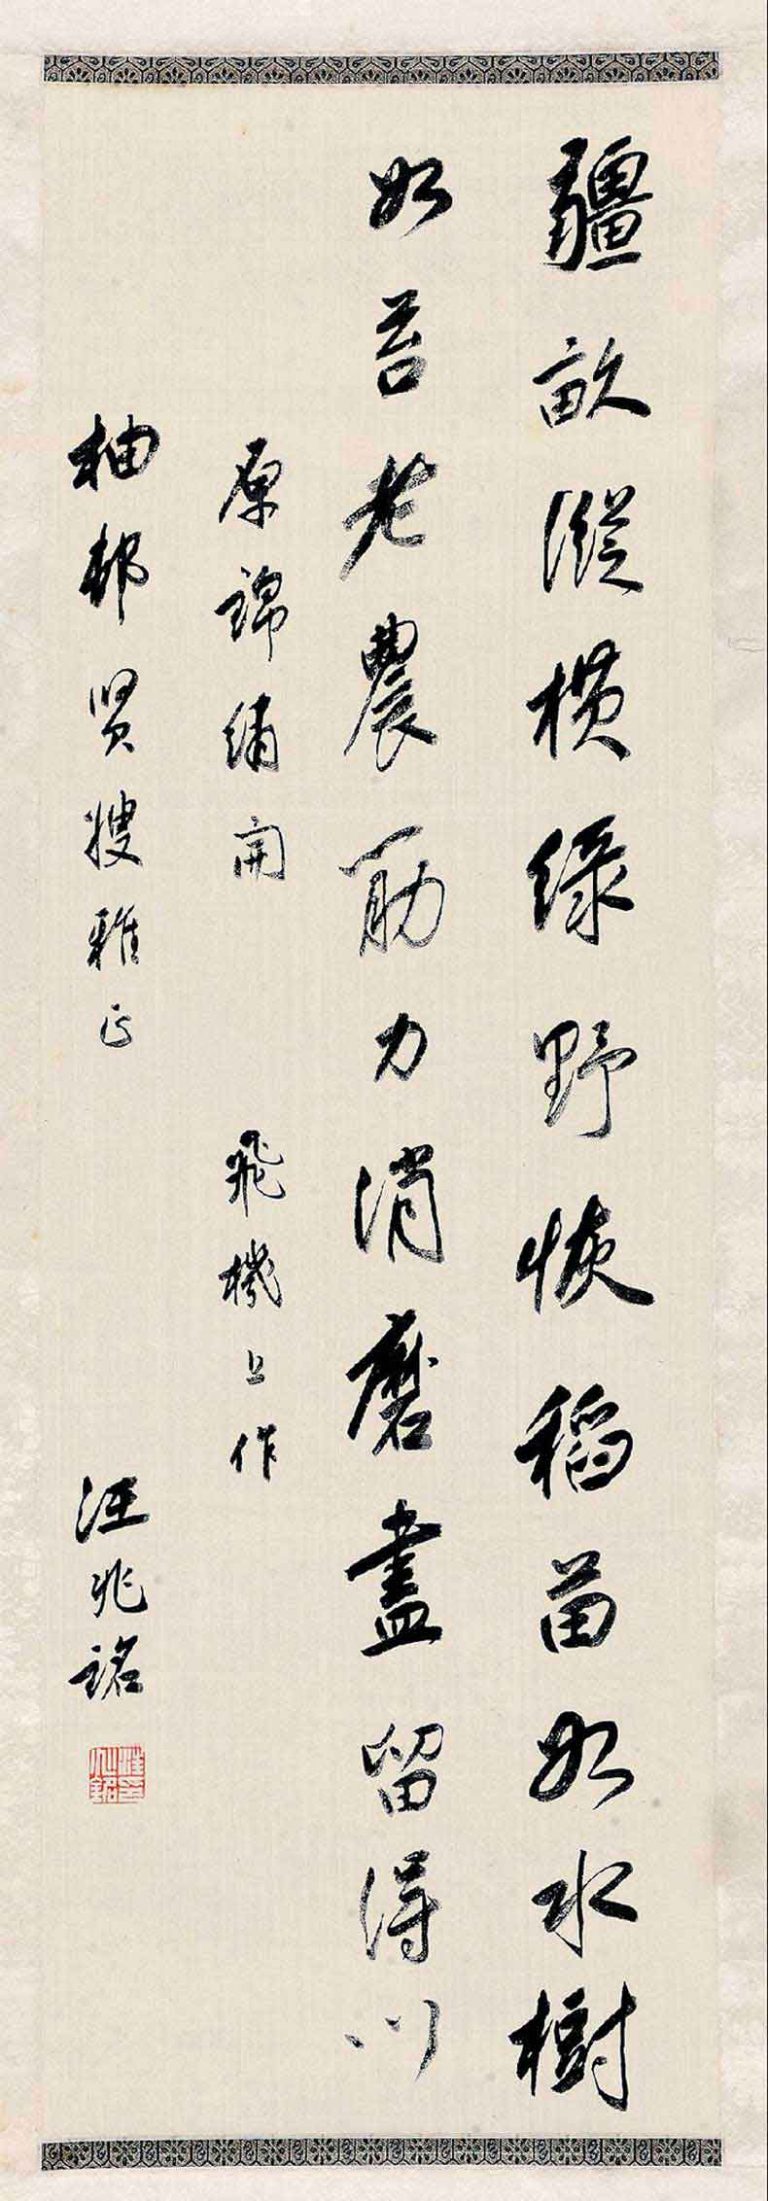 疆畝縱橫綠野恢稻苗如水樹
如苔老農筋力消磨盡留得川
原錦繡開　飛機上作
柚邨賢嫂雅正　汪兆銘